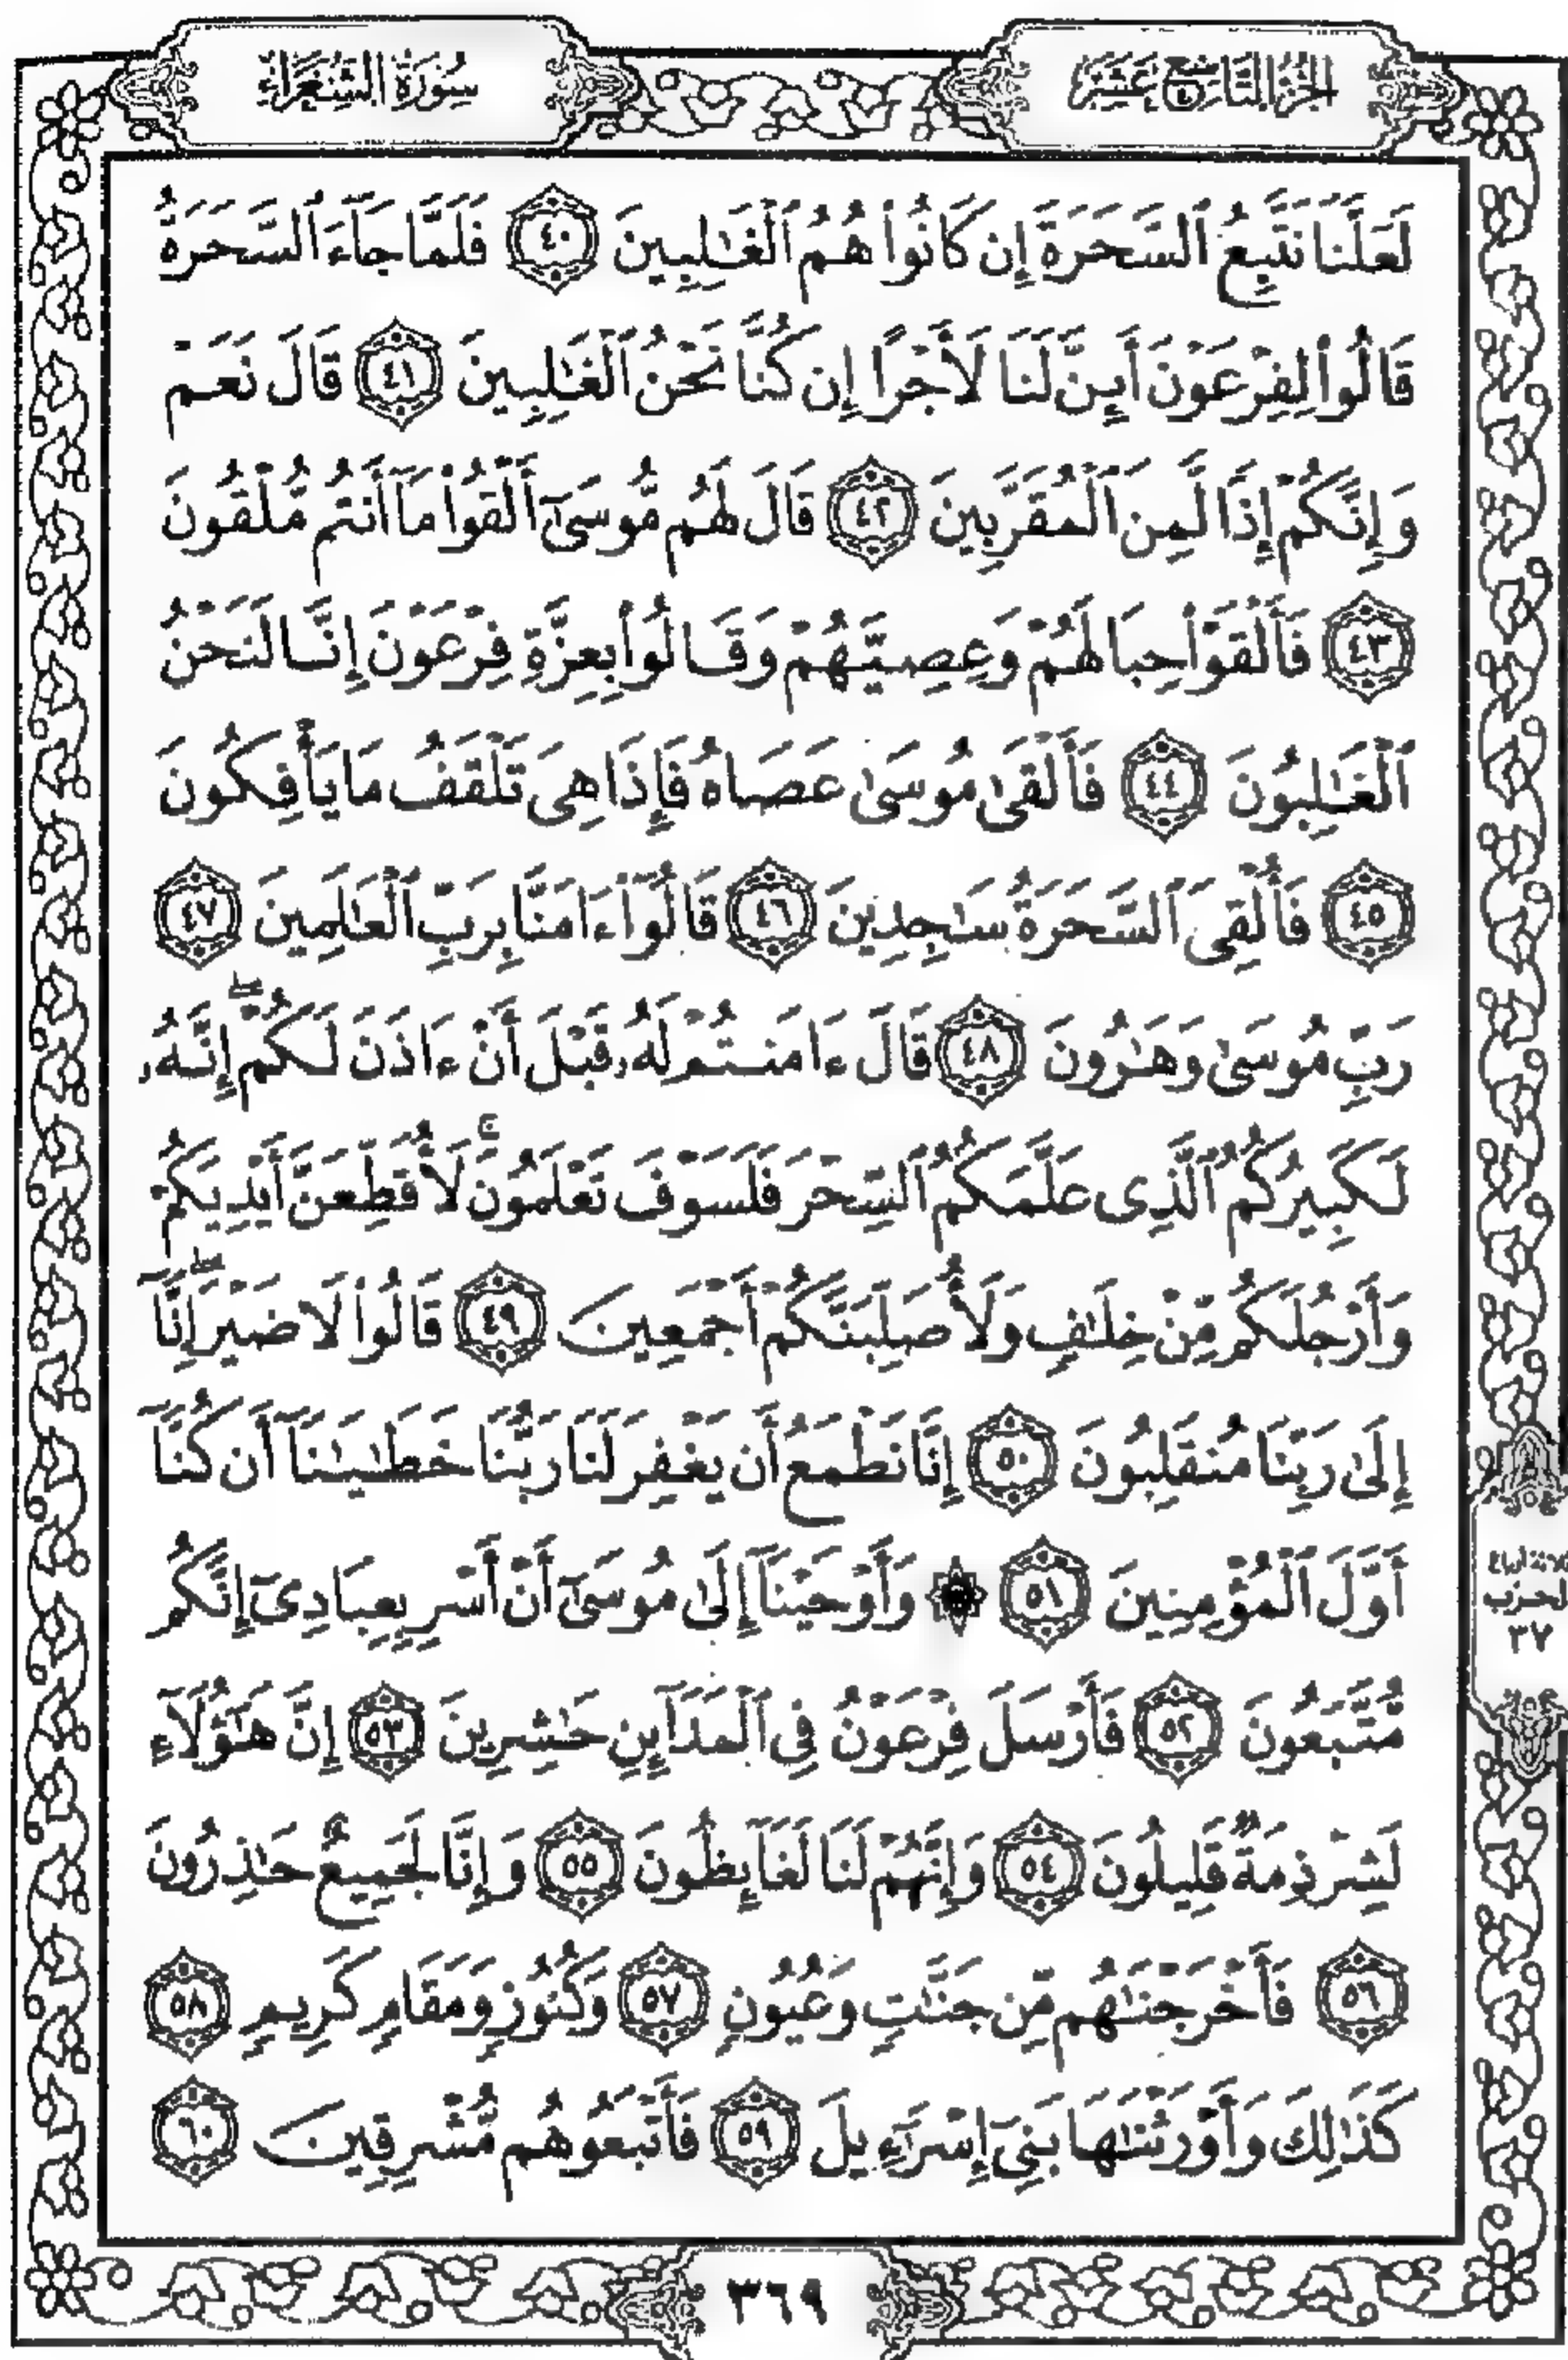 الجزء التاسع عشر
سورة الشعراء
لَعَلَّنَا نَتَّبِعُ ٱلسَّحَرَةَ إِن كَانُوا۟ هُمُ ٱلْغَـٰلِبِينَ ٤٠ فَلَمَّا جَآءَ ٱلسَّحَرَةُ
قَالُوا۟ لِفِرْعَوْنَ أَئِنَّ لَنَا لَأَجْرًا إِن كُنَّا نَحْنُ ٱلْغَـٰلِبِينَ ٤١ قَالَ نَعَمْ
وَإِنَّكُمْ إِذًا لَّمِنَ ٱلْمُقَرَّبِينَ ٤٢ قَالَ لَهُم مُّوسَىٰٓ أَلْقُوا۟ مَآ أَنتُم مُّلْقُونَ
٤٣ فَأَلْقَوْا۟ حِبَالَهُمْ وَعِصِيَّهُمْ وَقَالُوا۟ بِعِزَّةِ فِرْعَوْنَ إِنَّا لَنَحْنُ
ٱلْغَـٰلِبُونَ ٤٤ فَأَلْقَىٰ مُوسَىٰ عَصَاهُ فَإِذَا هِىَ تَلْقَفُ مَا يَأْفِكُونَ
٤٥ فَأُلْقِىَ ٱلسَّحَرَةُ سَـٰجِدِينَ ٤٦ قَالُوٓا۟ ءَامَنَّا بِرَبِّ ٱلْعَـٰلَمِينَ ٤٧
رَبِّ مُوسَىٰ وَهَـٰرُونَ ٤٨ قَالَ ءَامَنتُمْ لَهُۥ قَبْلَ أَنْ ءَاذَنَ لَكُمْ ۖ إِنَّهُۥ
لَكَبِيرُكُمُ ٱلَّذِى عَلَّمَكُمُ ٱلسِّحْرَ فَلَسَوْفَ تَعْلَمُونَ ۚ لَأُقَطِّعَنَّ أَيْدِيَكُمْ
وَأَرْجُلَكُم مِّنْ خِلَـٰفٍ وَلَأُصَلِّبَنَّكُمْ أَجْمَعِينَ ٤٩ قَالُوا۟ لَا ضَيْرَ ۖ إِنَّآ
إِلَىٰ رَبِّنَا مُنقَلِبُونَ ٥٠ إِنَّا نَطْمَعُ أَن يَغْفِرَ لَنَا رَبُّنَا خَطَـٰيَـٰنَآ أَن كُنَّآ
أَوَّلَ ٱلْمُؤْمِنِينَ ٥١ ۞ وَأَوْحَيْنَآ إِلَىٰ مُوسَىٰٓ أَنْ أَسْرِ بِعِبَادِىٓ إِنَّكُم
مُّتَّبَعُونَ ٥٢ فَأَرْسَلَ فِرْعَوْنُ فِى ٱلْمَدَآئِنِ حَـٰشِرِينَ ٥٣ إِنَّ هَـٰٓؤُلَآءِ
لَشِرْذِمَةٌ قَلِيلُونَ ٥٤ وَإِنَّهُمْ لَنَا لَغَآئِظُونَ ٥٥ وَإِنَّا لَجَمِيعٌ حَـٰذِرُونَ
٥٦ فَأَخْرَجْنَـٰهُم مِّن جَنَّـٰتٍ وَعُيُونٍ ٥٧ وَكُنُوزٍ وَمَقَامٍ كَرِيمٍ ٥٨
كَذَٰلِكَ وَأَوْرَثْنَـٰهَا بَنِىٓ إِسْرَٰٓءِيلَ ٥٩ فَأَتْبَعُوهُم مُّشْرِقِينَ ٦٠
الحزب
٣٧
٣٦٩